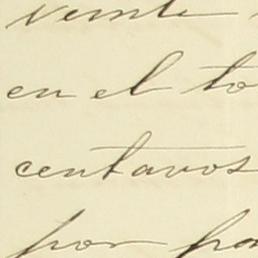 veinte
en el to
centavos
por pa